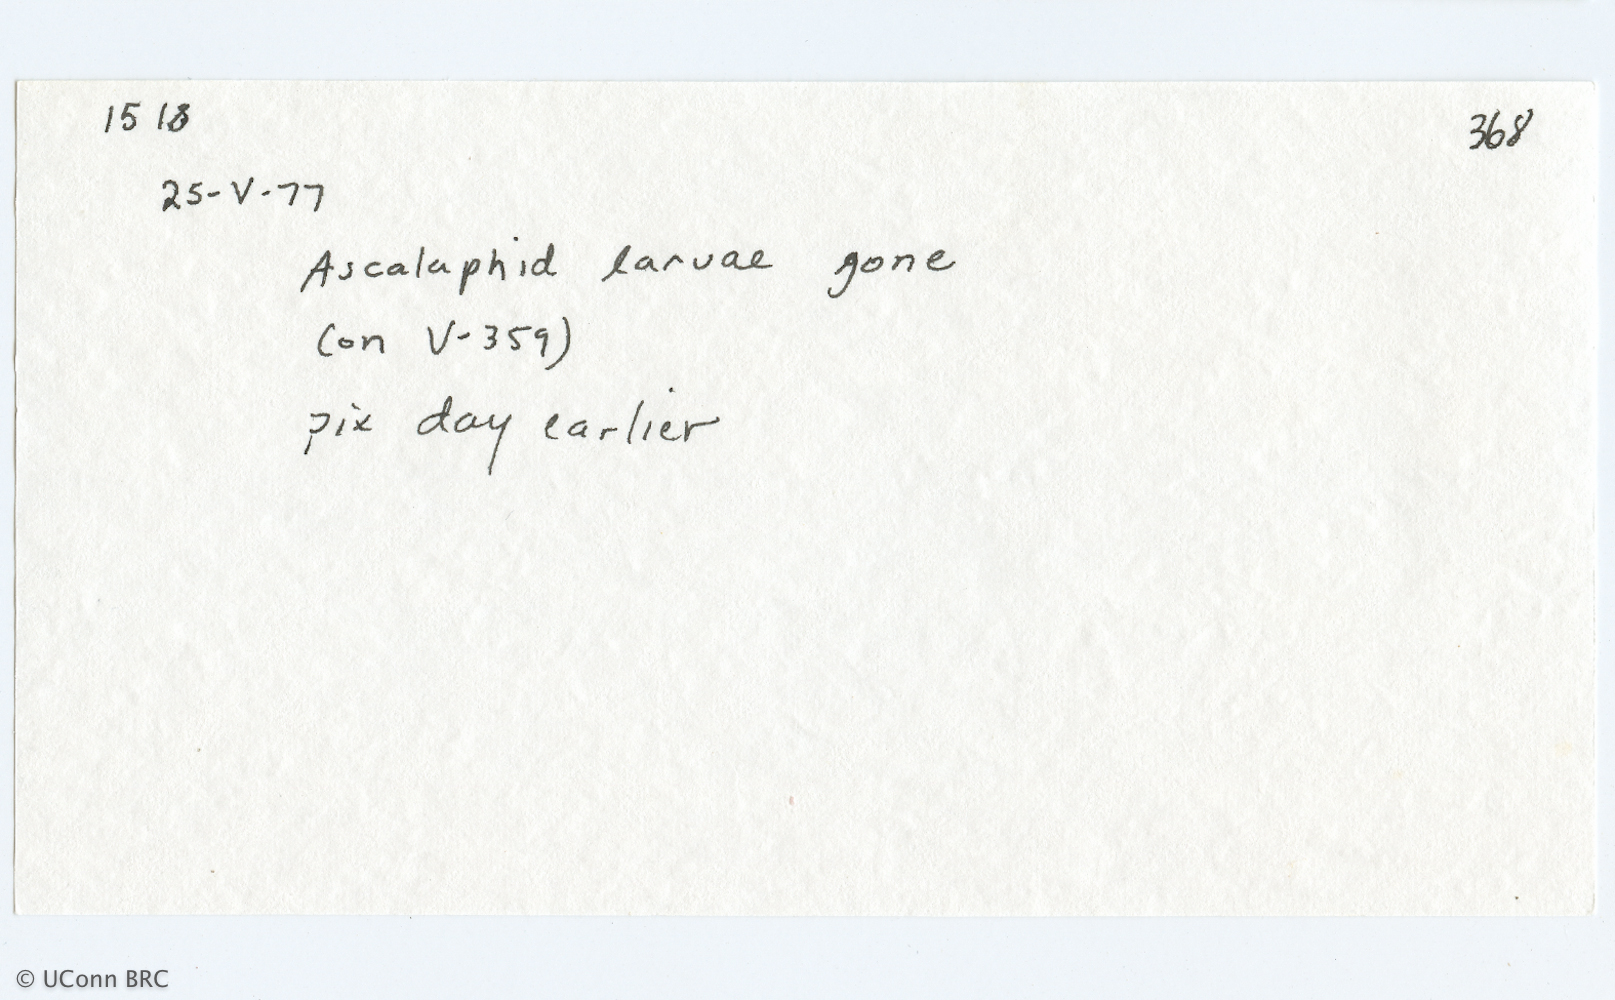 1518
368
25-V-77
Ascalaphid larvae gone
(on V-359)
pix day earlier
© UConn BRC